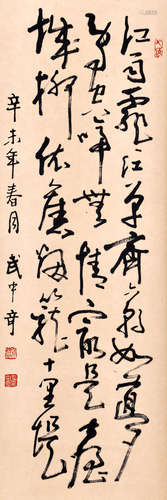 江雨霏霏江草齊六朝如夢
鳥空啼無情最是臺
城柳依舊煙籠十里堤
辛未年春月武中奇